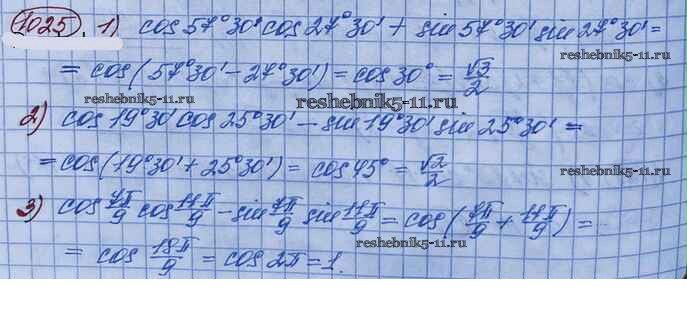 1025. 1) cos 57°30' cos 27°30' + sin 57°30' sin 27°30' =
= cos(57°30' - 27°30') = cos 30° = √3/2
reshebnik5-11.ru
reshebnik5-11.ru
reshebnik5-11.ru
2) cos 19°30' cos 25°30' - sin 19°30' sin 25°30' =
= cos(19°30' + 25°30') = cos 45° = √2/2
reshebnik5-11.ru
3) cos 7π/9 cos 11π/9 - sin 7π/9 sin 11π/9 = cos(7π/9 + 11π/9) =
reshebnik5-11.ru
= cos 18π/9 = cos 2π = 1.